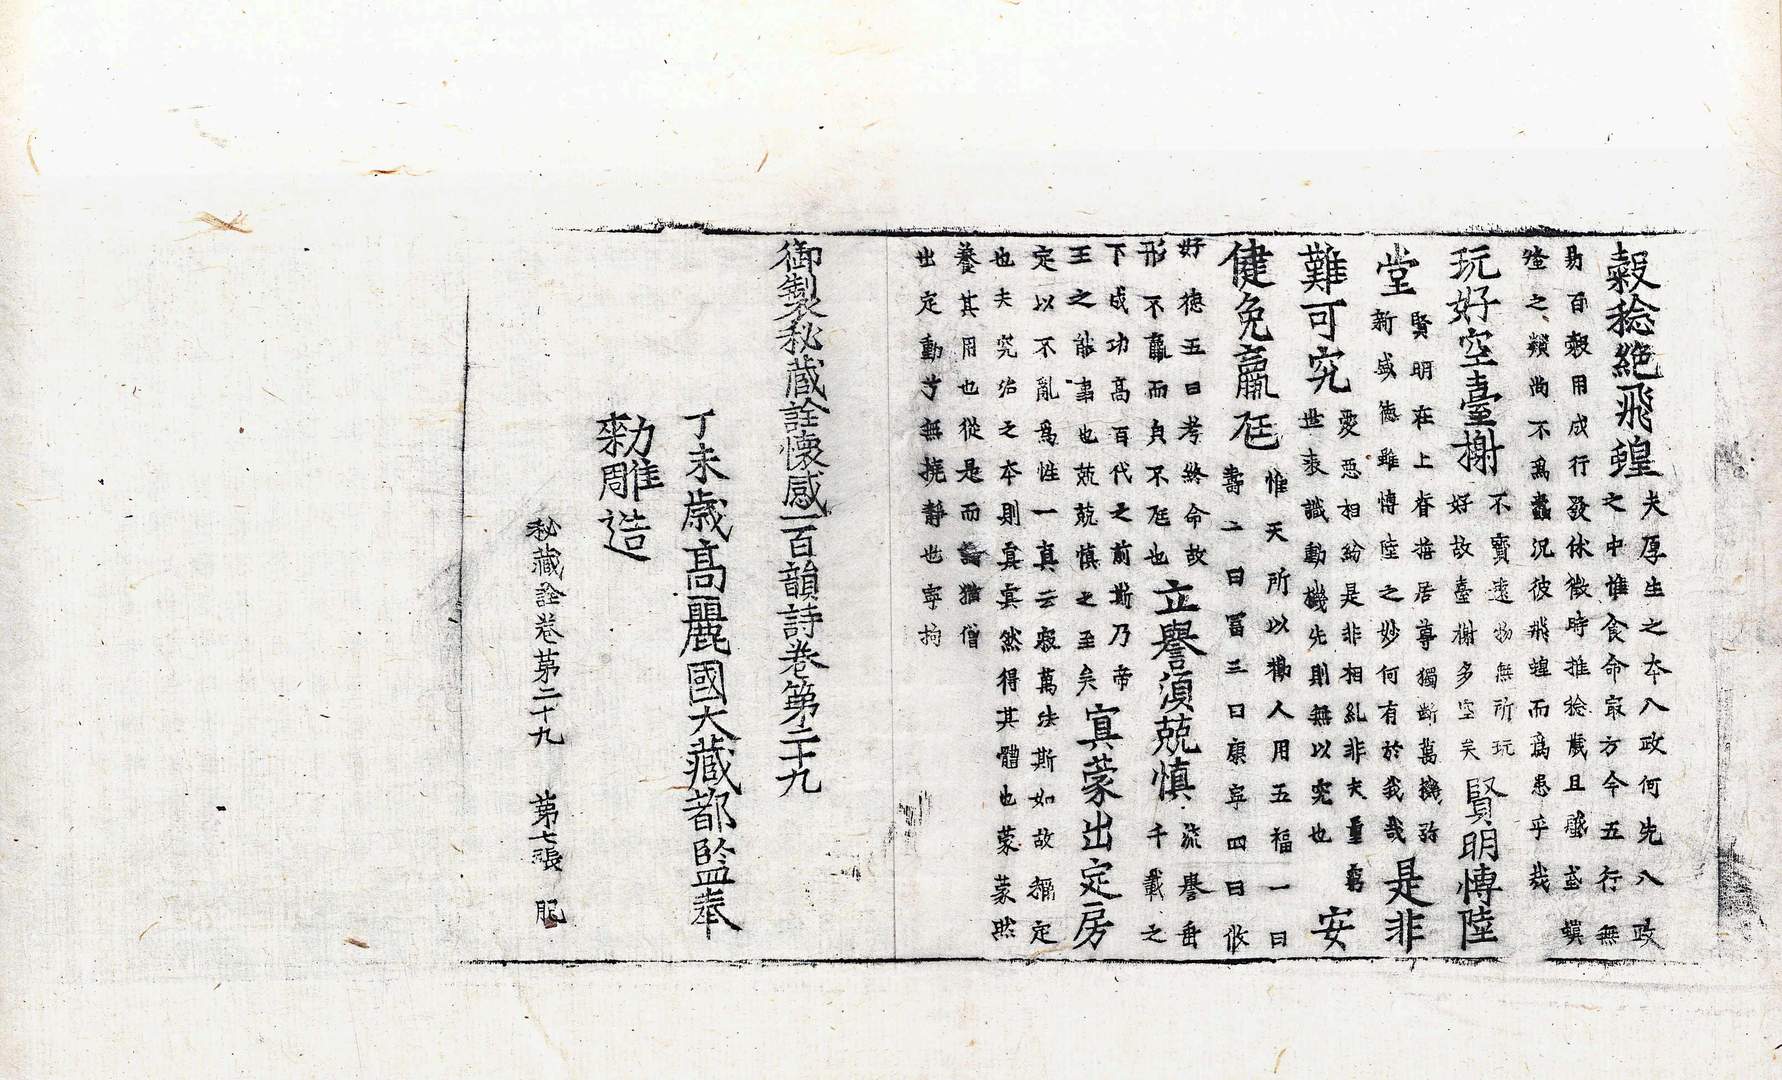 穀稔絶飛蝗夫厚生之本八政何先八政
之中惟食命㝡方今五行無
易百穀用成行發休徵時推稔歲且盛盍螟
之類尚不爲蠹況彼飛蝗而爲患乎哉
玩好空臺榭不寶遠物無所玩
好故臺榭多空矣賢明愽陸
堂賢明在上眘居尊獨斷萬機弥
新盛德雖愽陸之妙何有於我哉是非
難可究愛惡相紛是非相糺非夫重
世衷識動機先則無以究也安
健免羸尫惟天所以楊人用五福一曰
壽二曰冨三曰康寧四曰攸
好德五曰考終命故
形不羸而負不尫也立譽須兢慎流譽垂
千載之
下成功高百代之前斯乃帝
王之能事也兢兢慎之至矣冥蒙出定房
定以不亂爲性一真云寂萬法斯如故稱定
也夫究治之本則冥冥然得其體也蒙蒙然
養其用也從是而論猶僧
出定動兮無撓靜也寧拘
御製秘藏詮懷感一百韻詩卷第二十九
丁未歲高麗國大藏都監奉
勑雕造
秘藏詮卷第二十九　第七張　肥